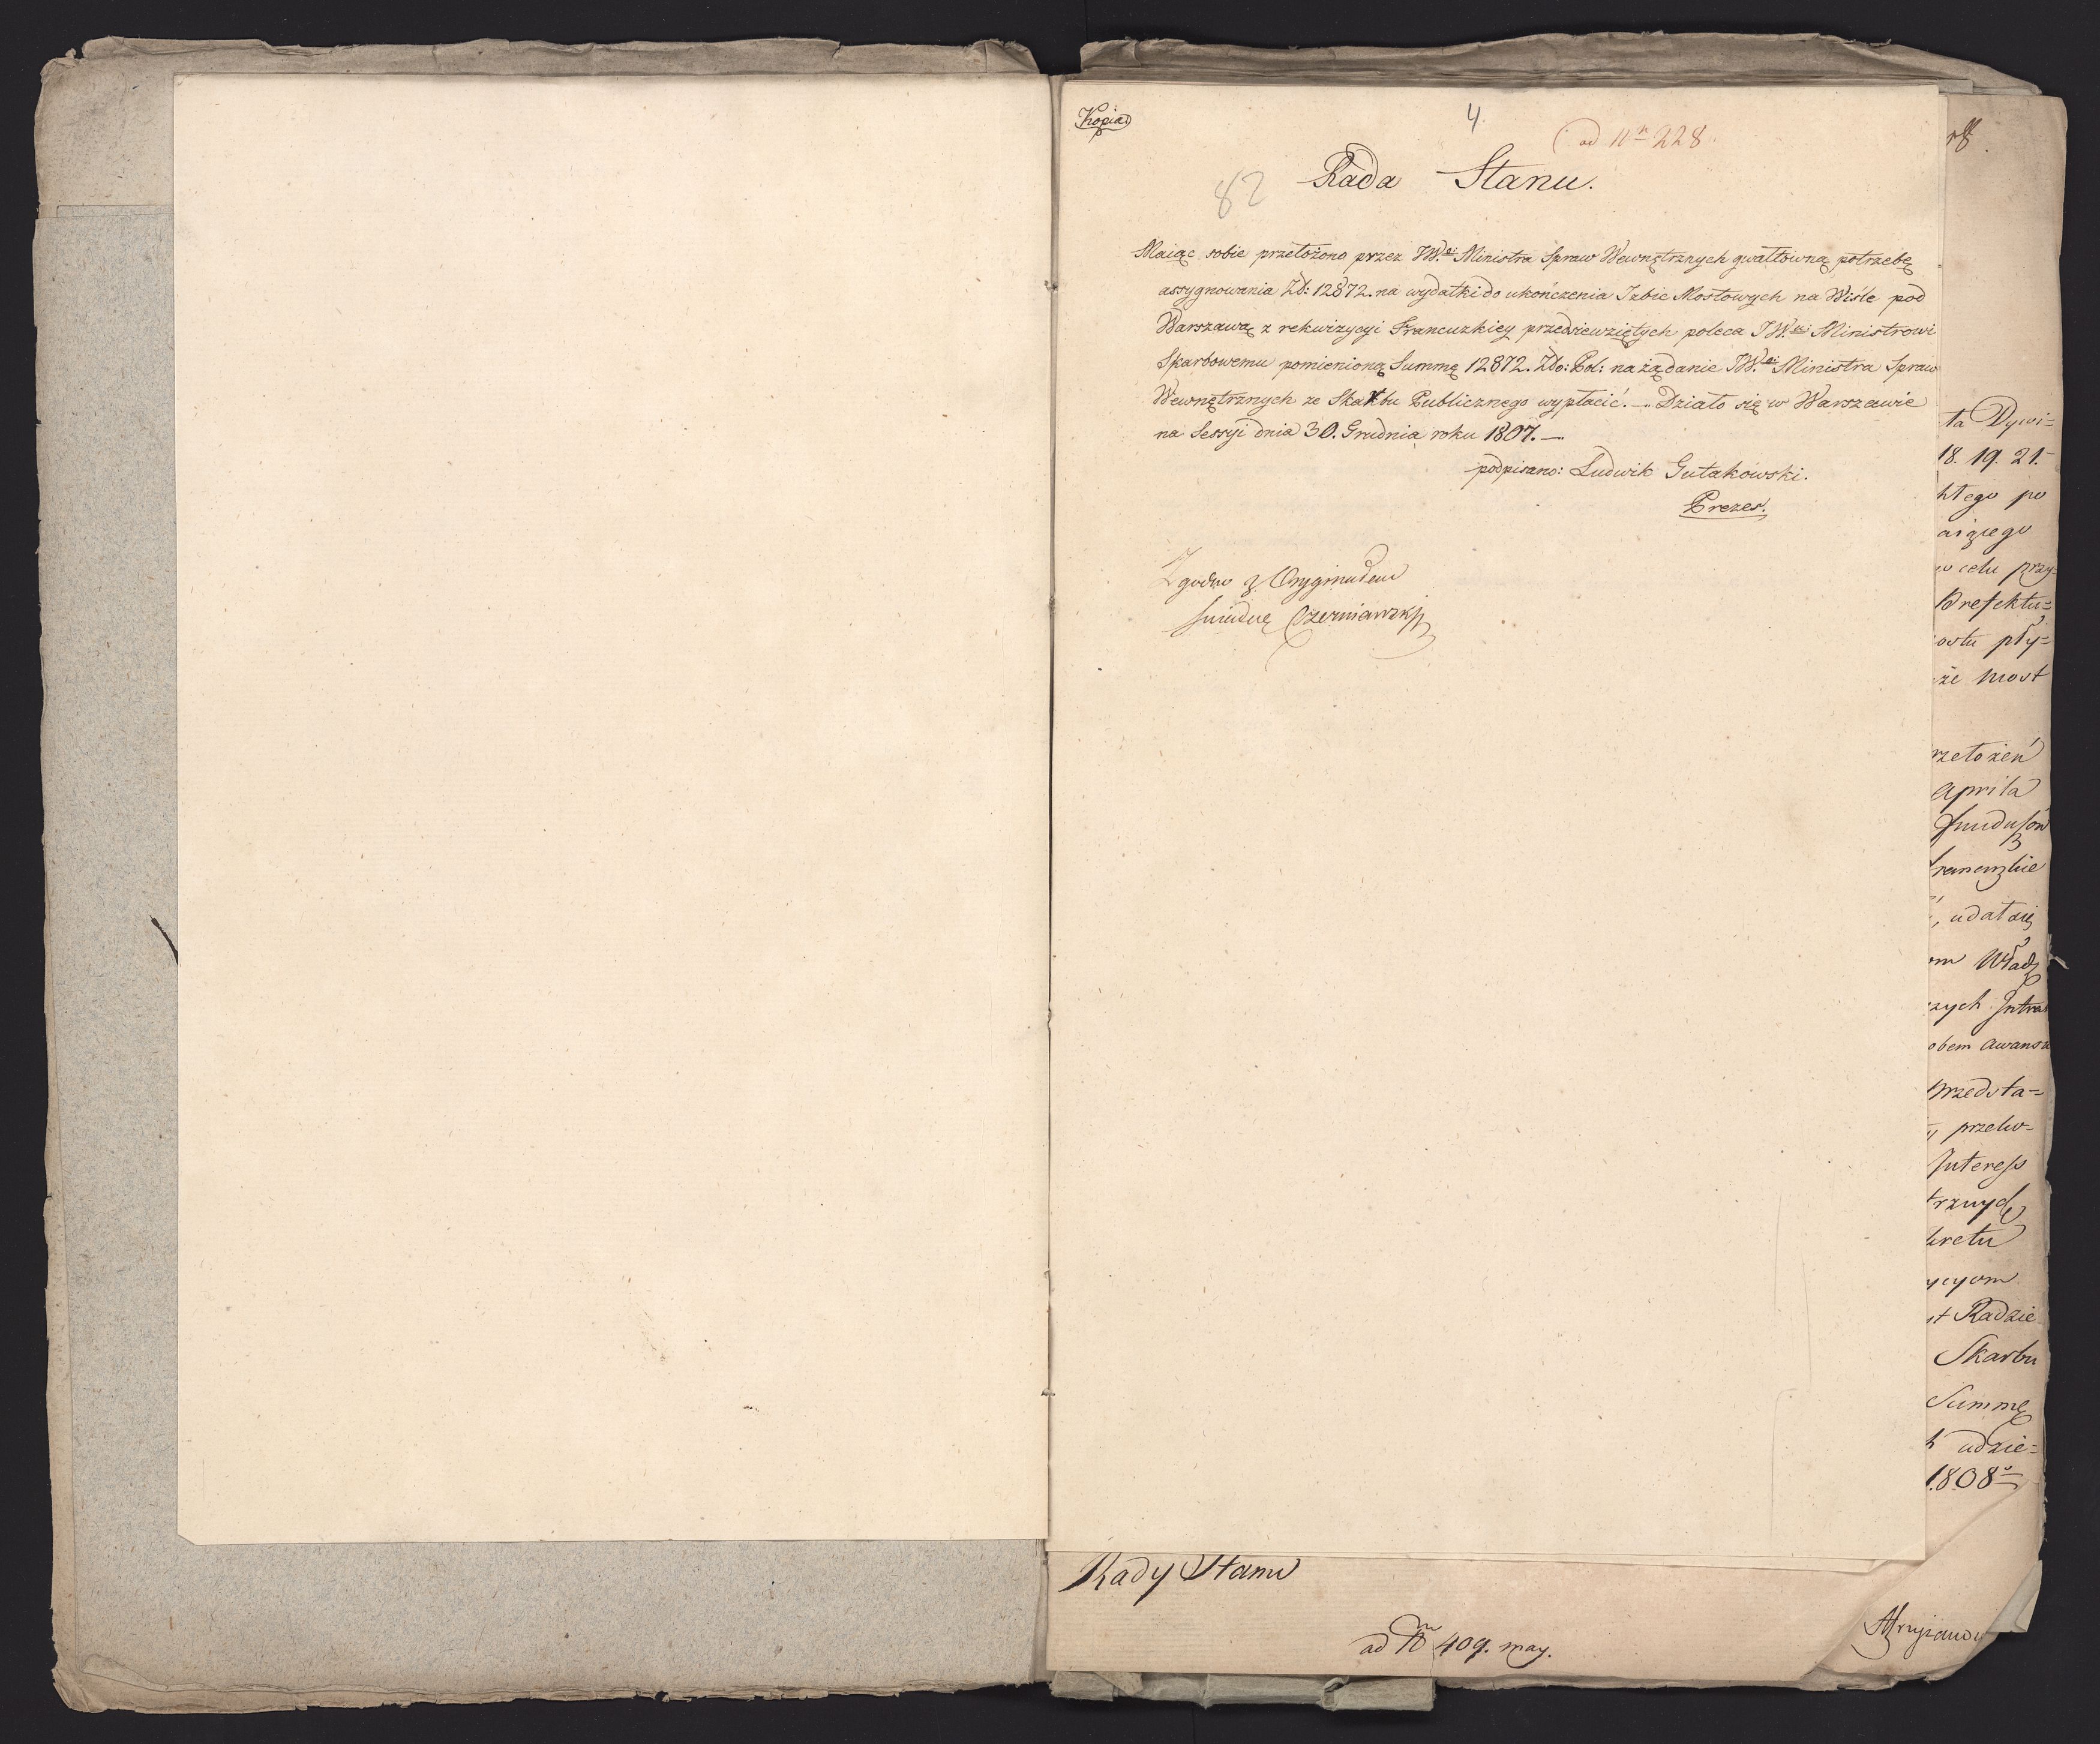 Kopia
4
ad Nr 228.
82
Rada Stanu.
Maiąc sobie przełożono przez JW.o Ministra Spraw Wewnętrznych gwałtowną potrzebę
assygnowania Zł: 12872. na wydatki do ukończenia Izbic Mostowych na Wiśle pod
Warszawą z rekwizycyi Francuzkiey przedsiewziętych poleca JW. Ministrowi
Skarbowemu pomienioną Summę 12872. Zło: Pol: na żądanie JW.o Ministra Spraw
Wewnętrznych ze Skarbu Publicznego wypłacić. — Działo się w Warszawie
na Sessyi dnia 30. Grudnia roku 1807. —
podpisano: Ludwik Gutakowski.
Prezes.
Zgodno z Oryginałem
Czerniawski
ta Dywi=
18. 19. 21.
htego po
aiącego
w celu przy=
Prefektu=
ostu pły=
że most
rzełożeń
Aprila
Funduszów
francuzkie
, udał się
om Władz
zych Intra
obem awansu
przedsta=
przeło=
Interess
trznych
kretu
ycyom
st Radzie
Skarbu
Summę
h udzie=
1808
Rady Stanu
ad Nrm 409. may.